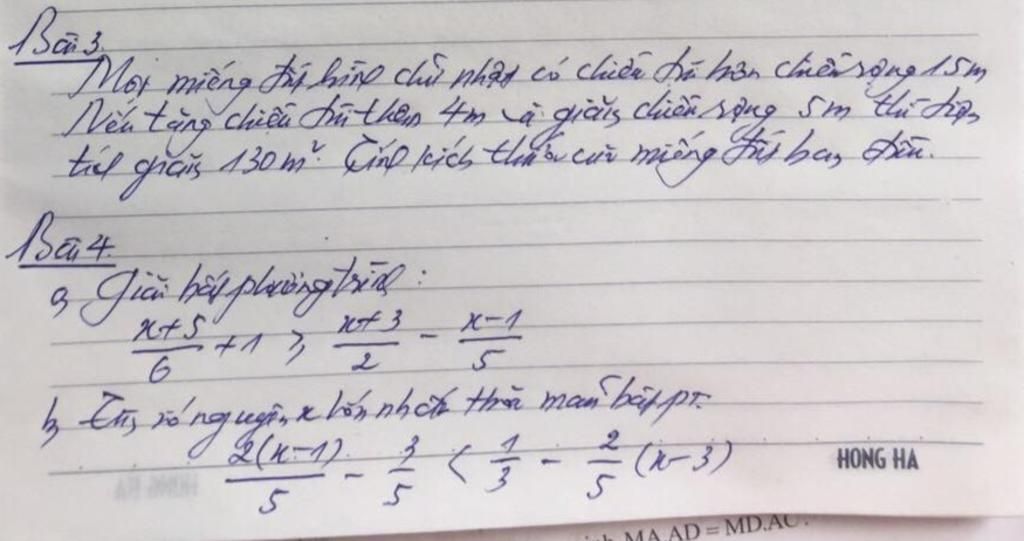 Bài 3.
Một miếng đất hình chữ nhật có chiều dài hơn chiều rộng 15m
Nếu tăng chiều dài thêm 4m và giảm chiều rộng 5m thì diện
tích giảm 130m². Tính kích thước của miếng đất ban đầu.
Bài 4.
a, Giải bất phương trình :
\frac{x+5}{6} + 1 ≥ \frac{x+3}{2} - \frac{x-1}{5}
b, Tìm số nguyên x lớn nhất thỏa mãn bất pt.
\frac{2(x-1)}{5} - \frac{3}{5} < \frac{1}{3} - \frac{2}{5}(x-3)
HONG HA
MA.AD = MD.AC.